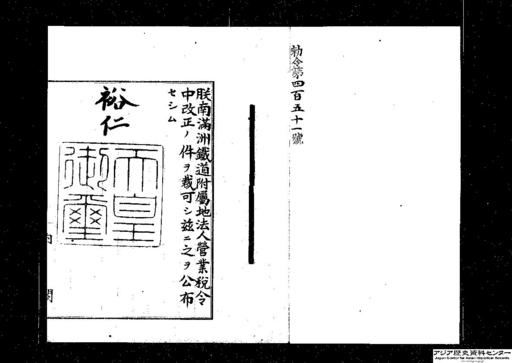 勅令第四百五十一號
朕南滿洲鐵道附屬地法人營業稅令
中改正ノ件ヲ裁可シ茲ニ之ヲ公布
セシム
裕仁
天皇
御璽
内閣
アジア歴史資料センター
Japan Center for Asian Historical Records